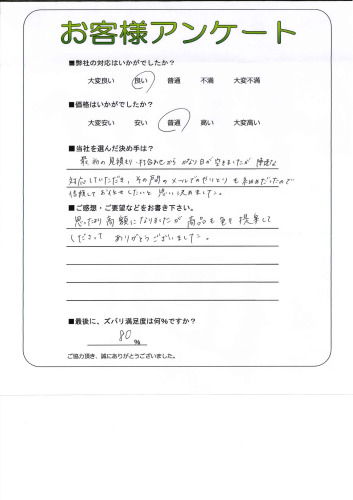 お客様アンケート
■弊社の対応はいかがでしたか？
大変良い 良い 普通 不満 大変不満
■価格はいかがでしたか？
大変安い 安い 普通 高い 大変高い
■当社を選んだ決め手は？
最初の見積もり、打合わせから かなり日が空きましたが 快速な
対応していただき、その間のメールでのやりとりも
信頼してお任せしたいと思い決めました。
■ご感想・ご要望などをお書き下さい。
思ったより高額になりましたが 商品も 提案して
くださって ありがとうございました。
■最後に、ズバリ満足度は何％ですか？
80 %
ご協力頂き、誠にありがとうございました。